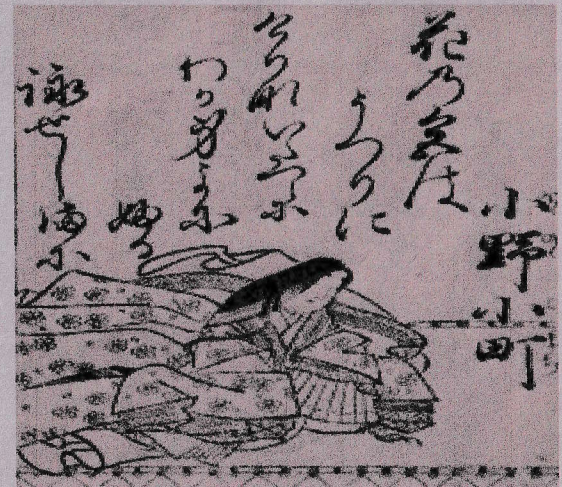 小野小町
花乃色は
うつりに
けり那いたつら尓
わか身よ尓
婦る
詠せし満尓